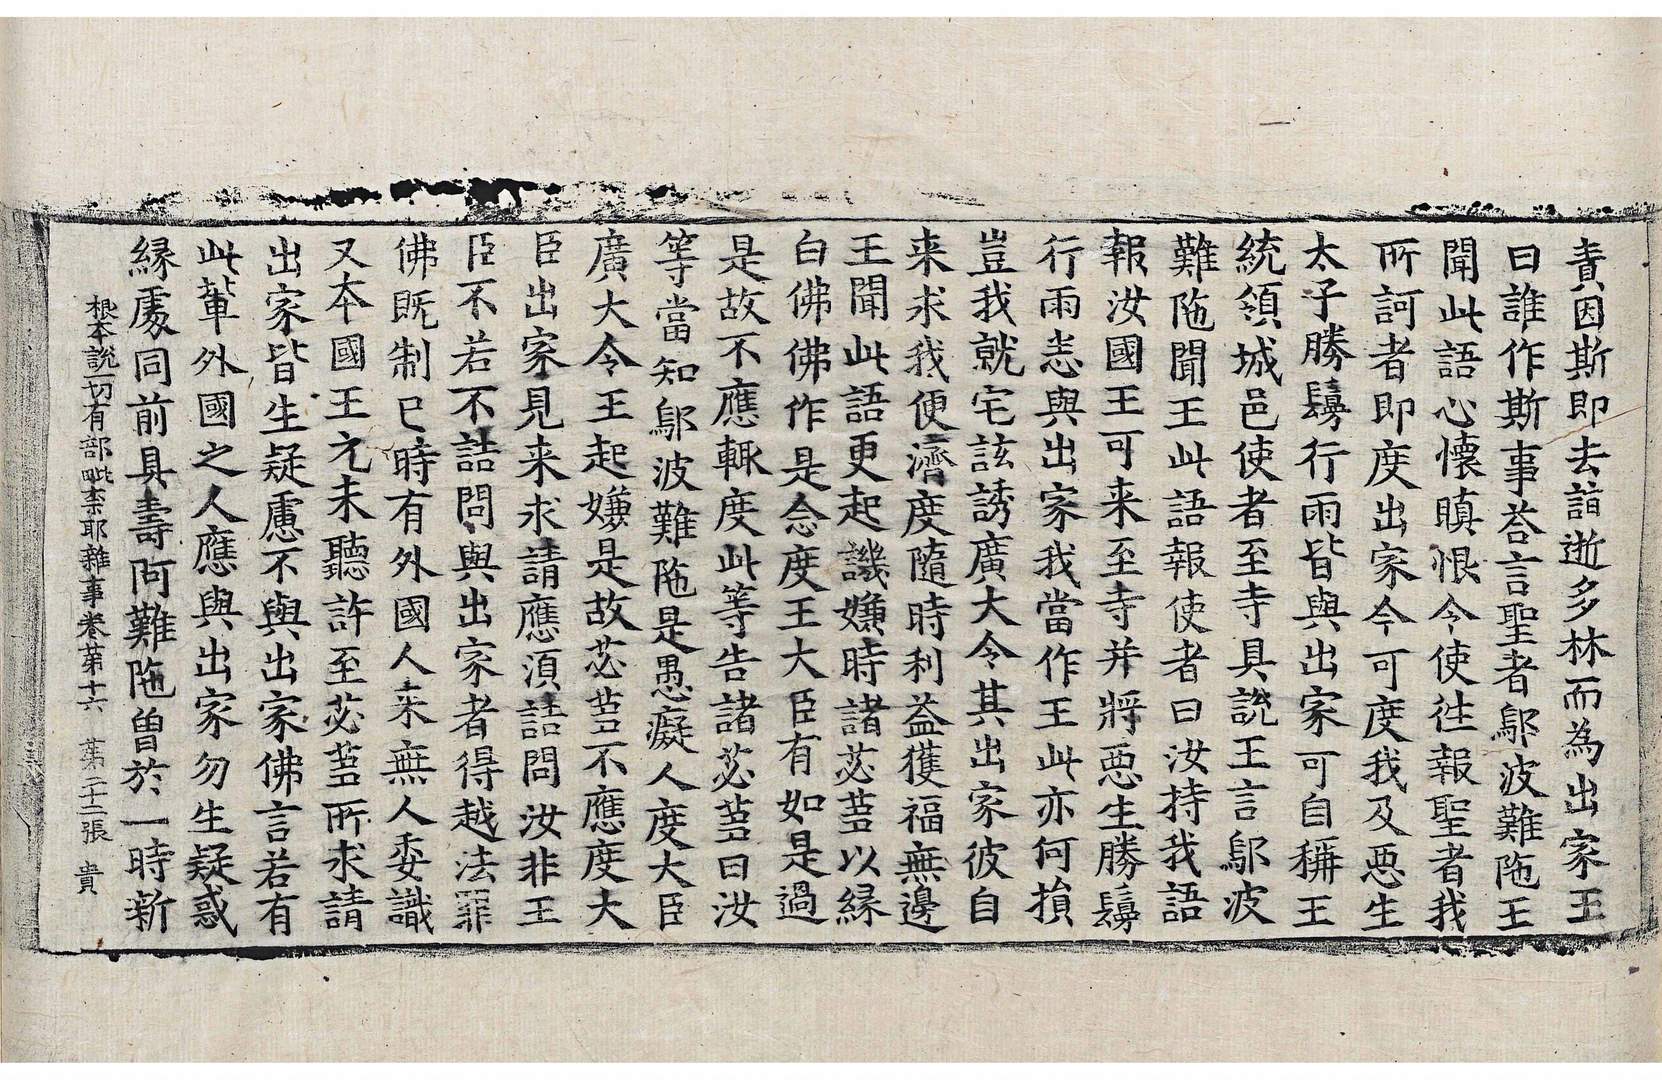 責因斯即去詣逝多林而為出家王
曰誰作斯事荅言聖者鄔波難陁王
聞此語心懷瞋恨令使往報聖者我
所訶者即度出家今可度我及惡生
太子勝鬘行雨皆與出家可自稱王
統領城邑使者至寺具說王言鄔波
難陁聞王此語報使者曰汝持我語
報汝國王可来至寺并將惡生勝鬘
行雨悉與出家我當作王此亦何損
豈我就宅該誘廣大令其出家彼自
来求我便濟度隨時利益獲福無邊
王聞此語更起譏嫌時諸苾芻以緣
白佛佛作是念度王大臣有如是過
是故不應輒度此等告諸苾芻曰汝
等當知鄔波難陁是愚癡人度大臣
廣大令王起嫌是故苾芻不應度大
臣出家見来求請應須詰問汝非王
臣不若不詰問與出家者得越法罪
佛既制已時有外國人来無人委識
又本國王元未聽許至苾芻所求請
出家皆生疑慮不與出家佛言若有
此輩外國之人應與出家勿生疑惑
緣處同前具壽阿難陁曾於一時新
根本說一切有部毗柰耶雜事卷第十六 第二十二張 貴